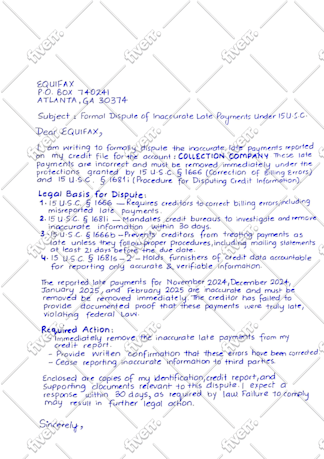 EQUIFAX
P.O. BOX 740241
ATLANTA, GA 30374
Subject : Formal Dispute of Inaccurate Late Payments Under 15 U.S.C.
Dear EQUIFAX,
I am writing to formally dispute the inaccurate late payments reported
on my credit file for the account : COLLECTION COMPANY These late
payments are incorrect and must be removed immediately under the
protections granted by 15 U.S.C. § 1666 (Correction of Billing Errors)
and 15 U.S.C. § 1681i (Procedure for Disputing Credit Information).
Legal Basis for Dispute:
1. 15 U.S.C. § 1666 – Requires creditors to correct billing errors, including
misreported late payments.
2. 15 U.S.C. § 1681i – Mandates credit bureaus to investigate and remove
inaccurate information within 30 days.
3. 15 U.S.C. § 1666b – Prevents creditors from treating payments as
late unless they follow proper procedures, including mailing statements
at least 21 days before the due date.
4. 15 U.S.C. § 1681s – 2 – Holds furnishers of credit data accountable
for reporting only accurate & verifiable information.
The reported late payments for November 2024, December 2024,
January 2025, and February 2025 are inaccurate and must be
removed be removed immediately. The creditor has failed to
provide documented proof that these payments were truly late,
violating federal law.
Required Action:
- Immediately remove the inaccurate late payments from my
credit report.
- Provide written confirmation that these errors have been corrected
- Cease reporting inaccurate information to third parties.
Enclosed are copies of my identification, credit report, and
supporting documents relevant to this dispute. I expect a
response within 30 days, as required by law. Failure to comply
may result in further legal action.
Sincerely,